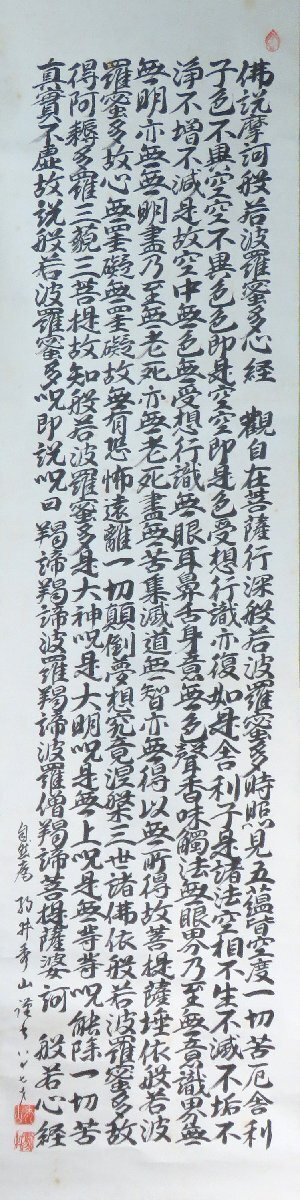 佛説摩訶般若波羅蜜多心經 觀自在菩薩行深般若波羅蜜多時照見五蘊皆空度一切苦厄舍利
子色不異空空不異色色即是空空即是色受想行識亦復如是舍利子是諸法空相不生不滅不垢不
淨不增不減是故空中無色無受想行識無眼耳鼻舌身意無色聲香味觸法無眼界乃至無意識界無
無明亦無無明盡乃至無老死亦無老死盡無苦集滅道無智亦無得以無所得故菩提薩埵依般若波
羅蜜多故心無罣礙無罣礙故無有恐怖遠離一切顛倒夢想究竟涅槃三世諸佛依般若波羅蜜多故
得阿耨多羅三藐三菩提故知般若波羅蜜多是大神呪是大明呪是無上呪是無等等呪能除一切苦
真實不虛故説般若波羅蜜多呪即説呪曰 羯諦羯諦波羅羯諦波羅僧羯諦菩提薩婆訶 般若心經
自然庵 秀山謹書 八十七才